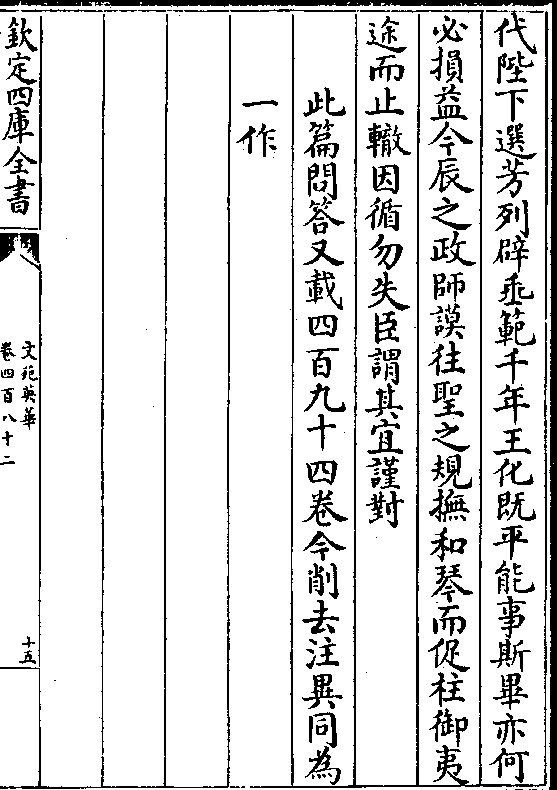 代陛下選芳列辟垂範千年王化既平能事斯畢亦何
必損益今辰之政師謨往聖之規撫和琴而促柱御夷
途而止轍因循勿失臣謂其宜謹對
此篇問答又載四百九十四卷今削去注異同為
一作
欽定四庫全書
文苑英華
卷四百八十二
十五